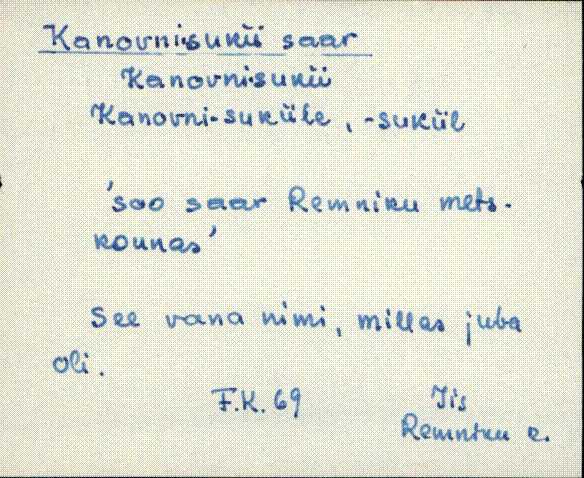 Kanovni-sukü saar
Kanovnisukü
Kanovni-suküle, -sukül
'soo saar Remniku mets-
konnas'
See vana nimi, millas juba
oli.
F.K. 69 Iis
Remniku k.